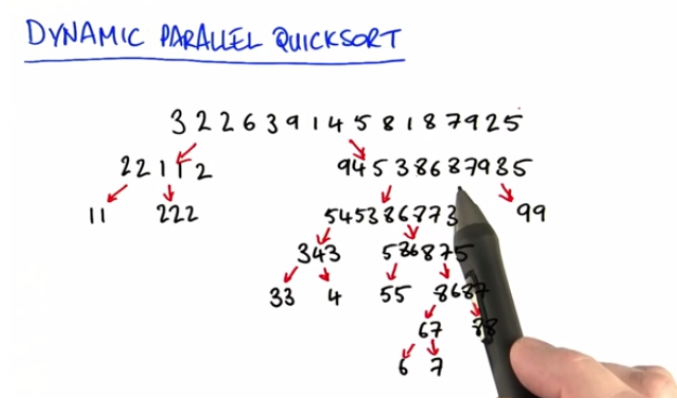 DYNAMIC PARALLEL QUICKSORT
3 2 2 6 3 9 1 4 5 8 1 8 7 9 2 5
2 2 1 1 2 94538687935
11 222 545386773 99
343 586875
33 4 55 8687
67 88
6 7